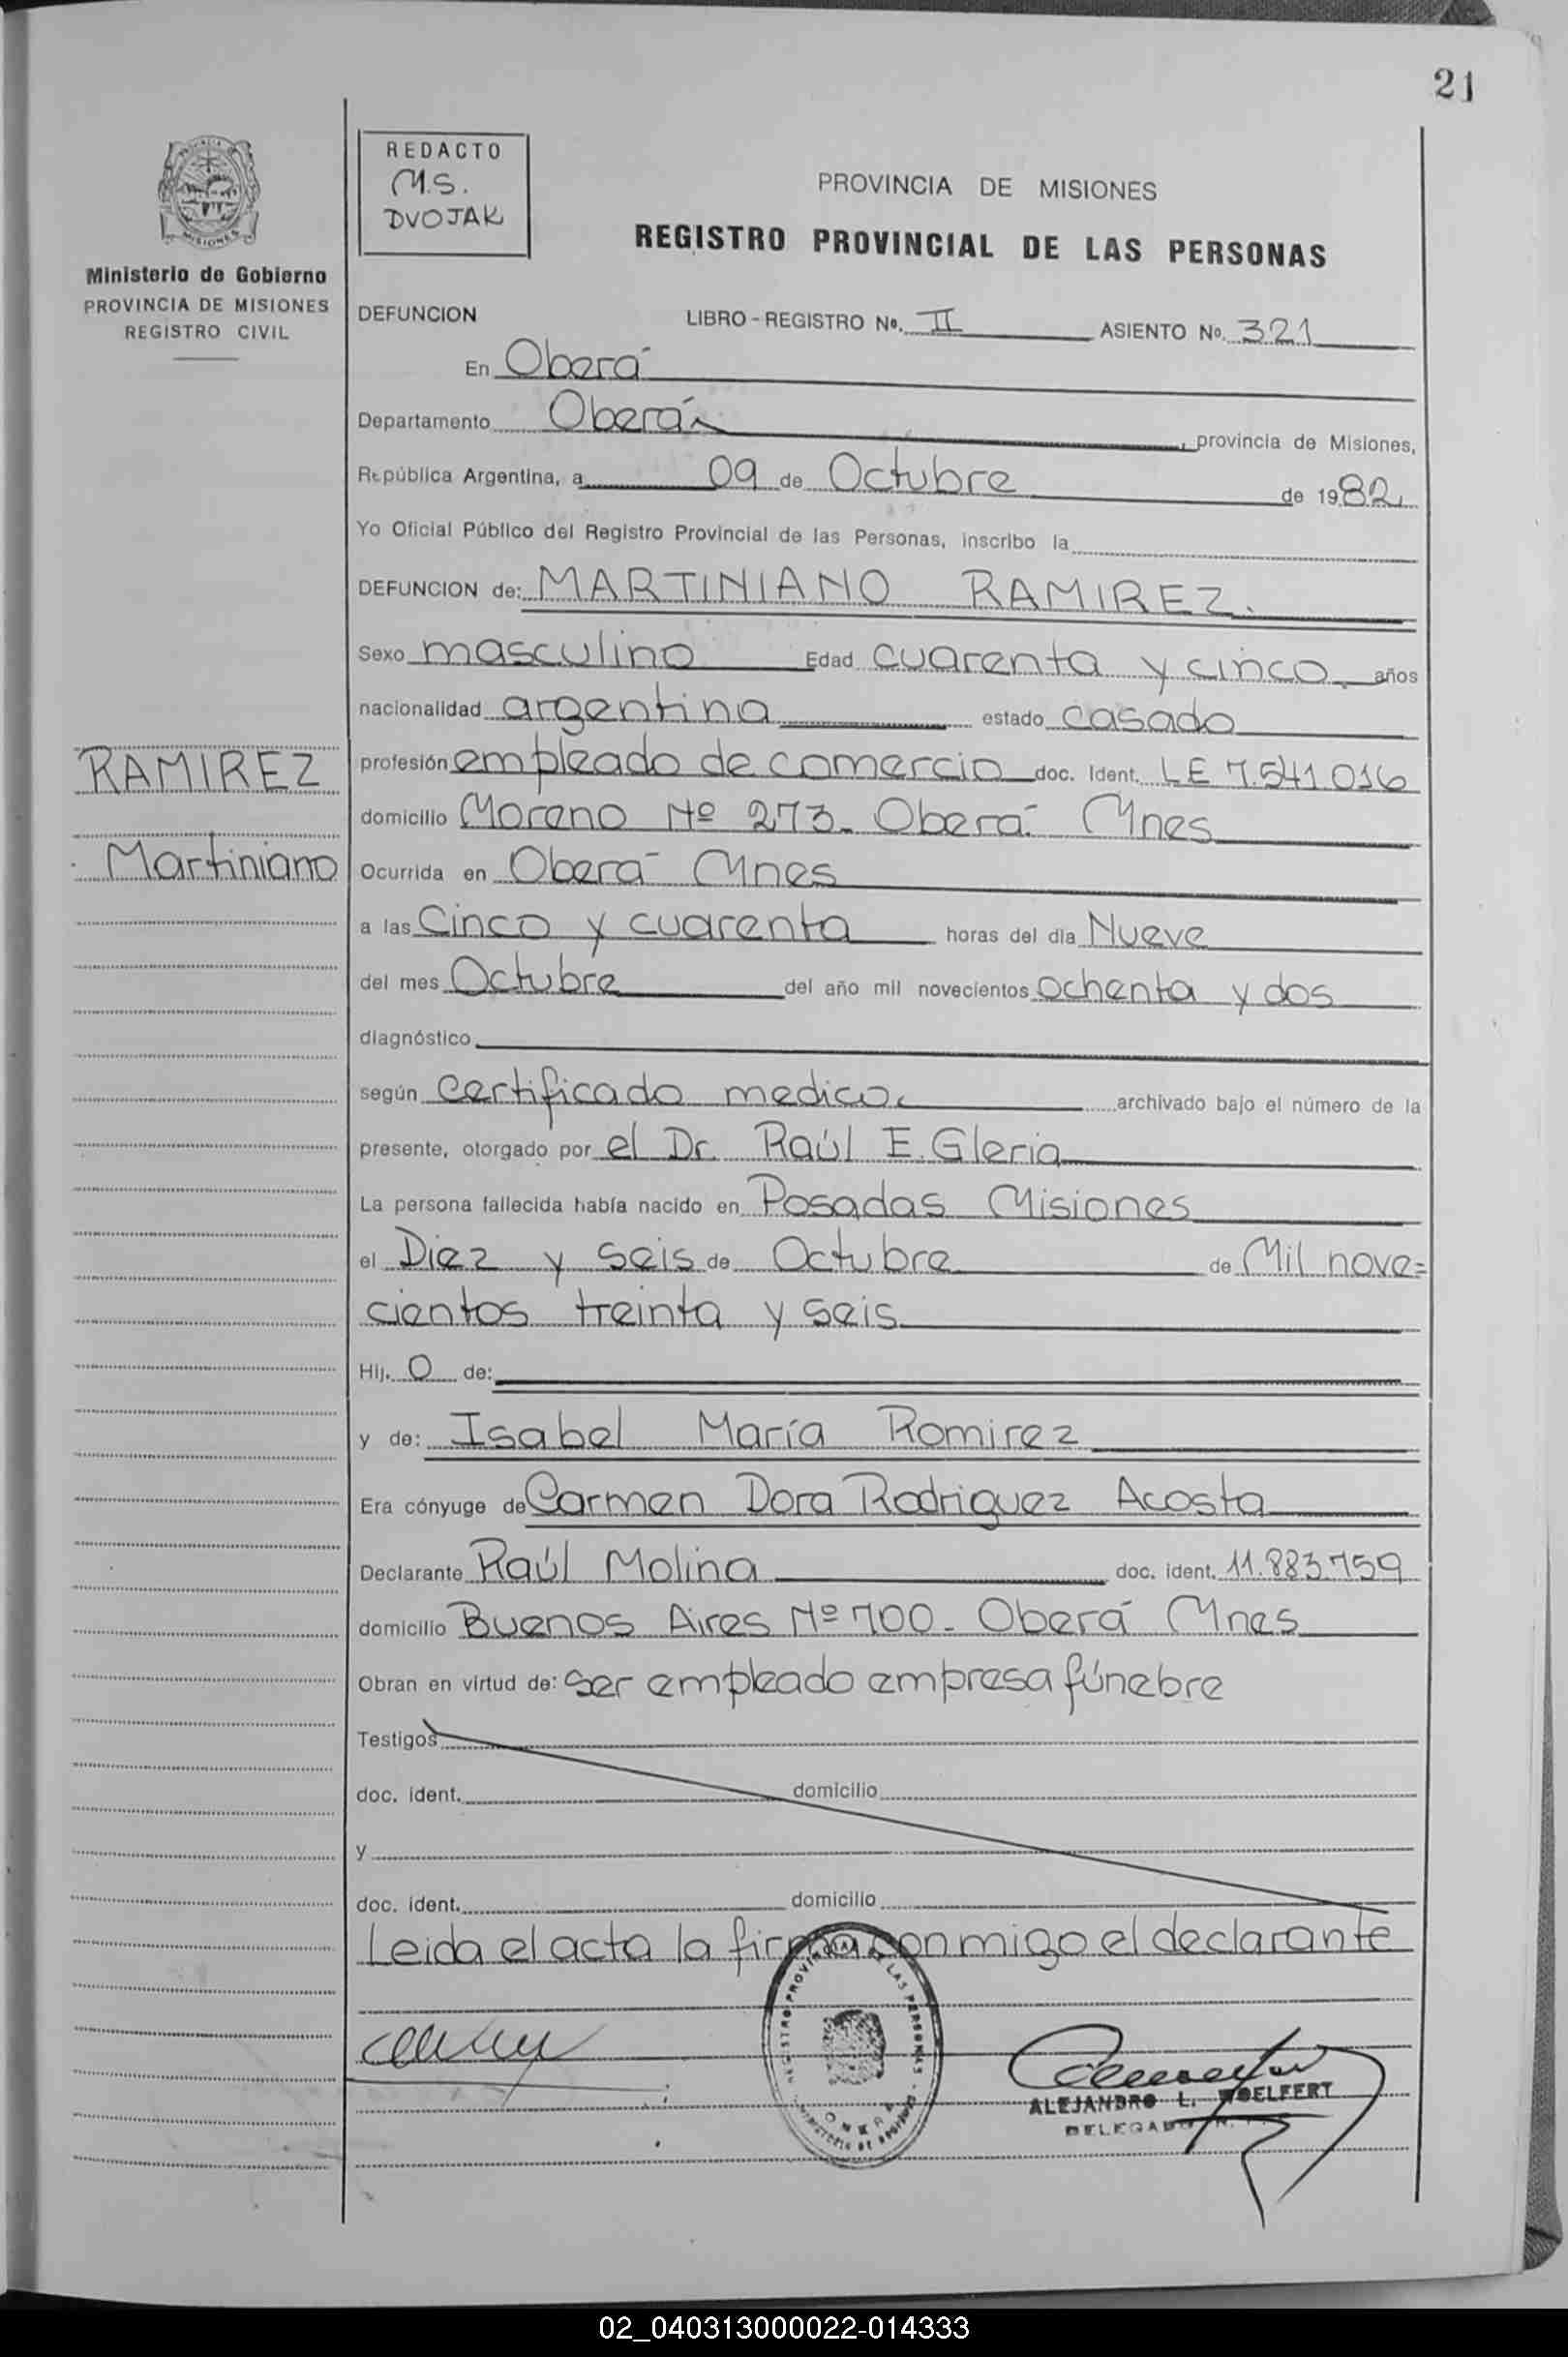 21
REDACTO
M.S.
DVOJAK
PROVINCIA DE MISIONES
REGISTRO PROVINCIAL DE LAS PERSONAS
MISIONES
Ministerio de Gobierno
PROVINCIA DE MISIONES
REGISTRO CIVIL
DEFUNCION LIBRO - REGISTRO Nº. II ASIENTO Nº. 321
En Oberá
Departamento Oberá, provincia de Misiones,
República Argentina, a 09 de Octubre de 1982
Yo Oficial Público del Registro Provincial de las Personas, inscribo la
DEFUNCION de: MARTINIANO RAMIREZ.
Sexo masculino Edad cuarenta y cinco años
nacionalidad argentina estado casado
RAMIREZ
Martiniano
profesión empleado de comercio doc. Ident. LE 7.541.016
domicilio Moreno Nº 273- Oberá Mnes
Ocurrida en Oberá Mnes
a las Cinco y cuarenta horas del día Nueve
del mes Octubre del año mil novecientos ochenta y dos
diagnóstico
según certificado medico. archivado bajo el número de la
presente, otorgado por el Dr. Raúl E. Gleria
La persona fallecida había nacido en Posadas Misiones
el Diez y seis de Octubre de Mil nove=
cientos treinta y seis
Hij. o de:
y de: Isabel María Romirez
Era cónyuge de Carmen Dora Rodriguez Acosta
Declarante Raúl Molina doc. ident. 11.883.759
domicilio Buenos Aires Nº 700- Oberá Mnes
Obran en virtud de: ser empleado empresa fúnebre
Testigos
doc. ident. domicilio
y
doc. ident. domicilio
Leida el acta la firma conmigo el declarante
REGISTRO PROVINCIAL DE LAS PERSONAS
OBERA
ALEJANDRO L. WOELFERT
DELEGADO
02_040313000022-014333